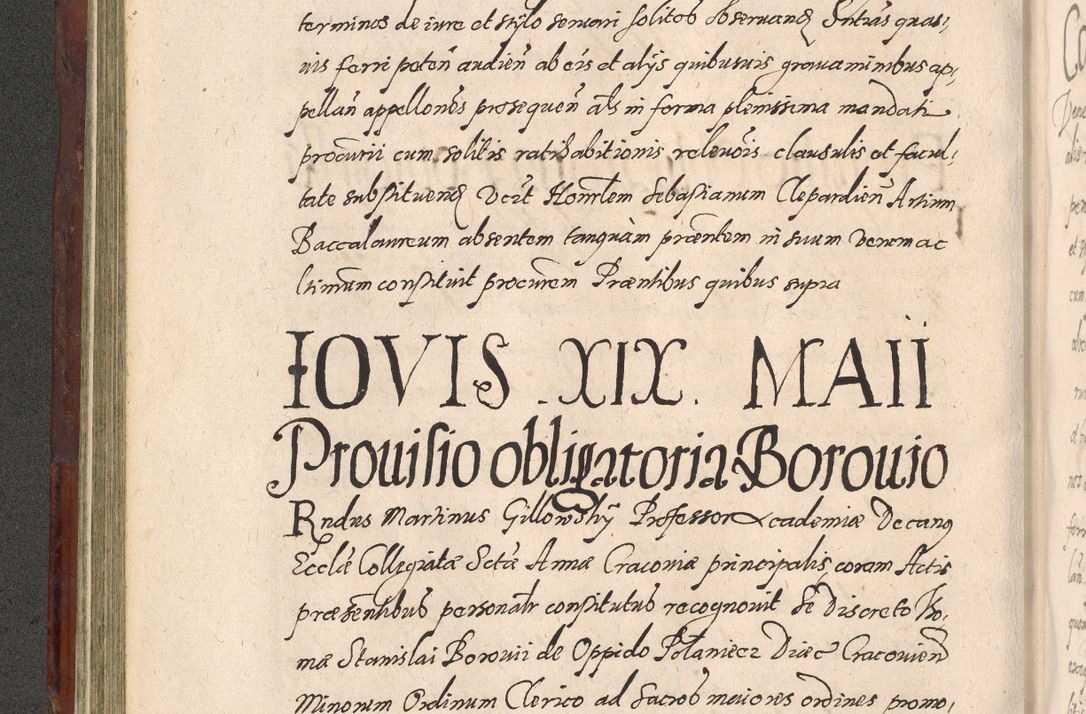 terminos de iure et stylo seruari solitos obseruand Sntias quas,
uis ferri peten̄ audien̄ ab eis et alijs quibusuis grauaminibus ap,
pellan̄ appellon̄es prosequen̄ als in forma plenissima mandati
procurii cum solitis ratihabitionis releuōis clausulis et facul,
tate substituend Vctt Honrlem Sebastianum Clepardien̄ Artium
Baccalaureum absentem tanquàm prēntem in suum verum ac
ltimum constituit procūrem Prēntibus quibus supra
IOVIS . XIX . MAII
Prouisio obligatoria Borouio
Rndus Martinus Gillowshÿ Professor Academiæ Decanq
Ecclē Collegiatæ Sctæ Annæ Cracouiæ principalis coram Actis
præsentibus personalr constitutus recognouit se Discreto Tho,
mæ Stanislai Borouii de Oppido Polaniecz Diæc Cracouien̄
Minorum Ordinum Clerico ad Sacros maiores ordines promo,